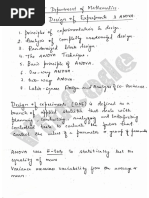 Department of Mathematics
Design of Experiment & ANOVA.
1. principles of experimentation & design.
2. Analysis of Completly randomized design
3. Randomized block design
4. The ANOVA Technique
5. Basic principle of ANOVA.
6. one-way ANOVA
7. Two-way ANOVA.
8. Latin-Square Design and Analysis of co-Variance.
Design of experiments (DOE) is defined as a
branch of applied statistics that deals with
planning, conducting, analyzing and interpreting
controlled tests to evaluate the factors that
control the value of a parameter or group of parameters.
ANOVA uses F-test to statistically test the
equality of mean